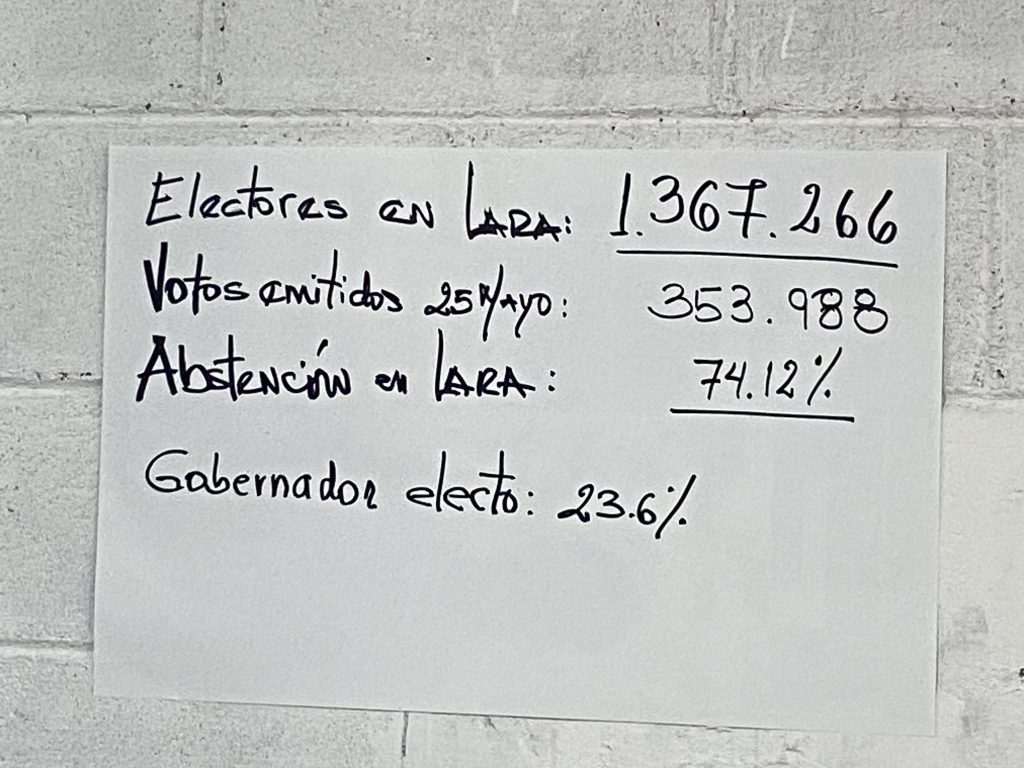 Electores en LARA: 1.367.266
Votos emitidos 25 Mayo: 353.988
Abstención en LARA: 74.12%
Gobernador electo: 23.6%